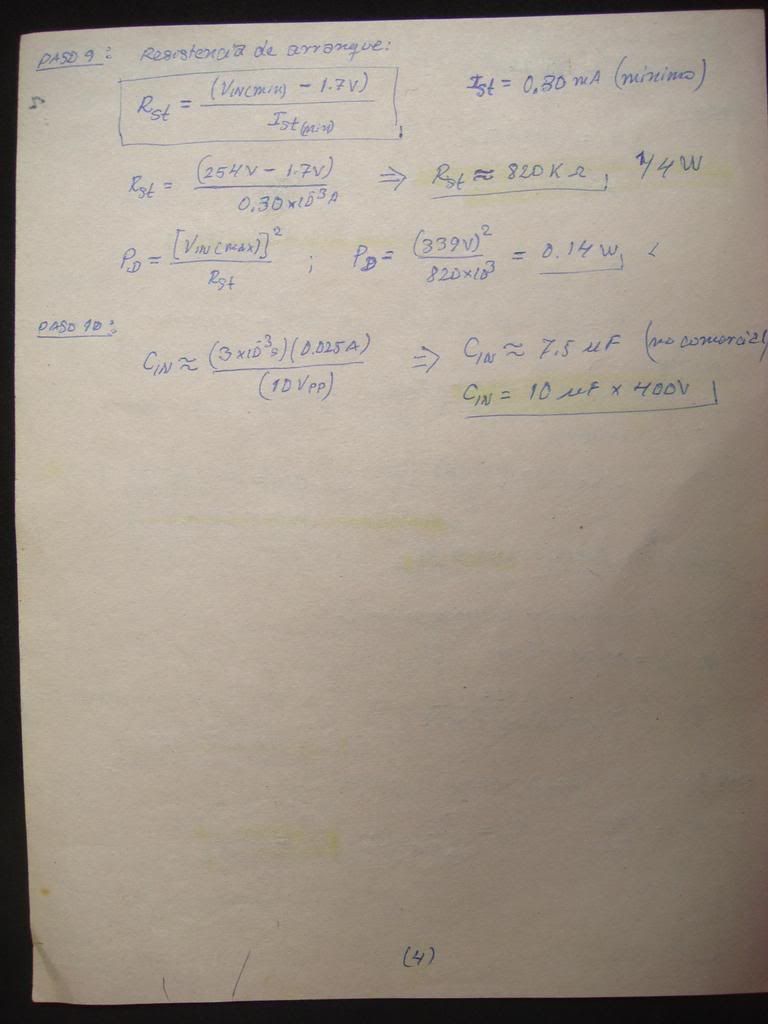 PASO 9: Resistencia de arranque:
R_st = (V_IN(min) - 1.7V) / I_st(min)
I_st = 0,30 mA (mínimo)
R_st = (254V - 1.7V) / 0.30×10^-3 A ⇒ R_st ≈ 820KΩ, 1/4W
P_D = [V_IN(max)]^2 / R_st ; P_D = (339V)^2 / 820×10^3 = 0.14W
PASO 10:
C_IN ≈ (3×10^-3 s)(0.025A) / (10Vpp) ⇒ C_IN ≈ 7.5 uF (no comercial)
C_IN = 10 uF × 400V
(4)